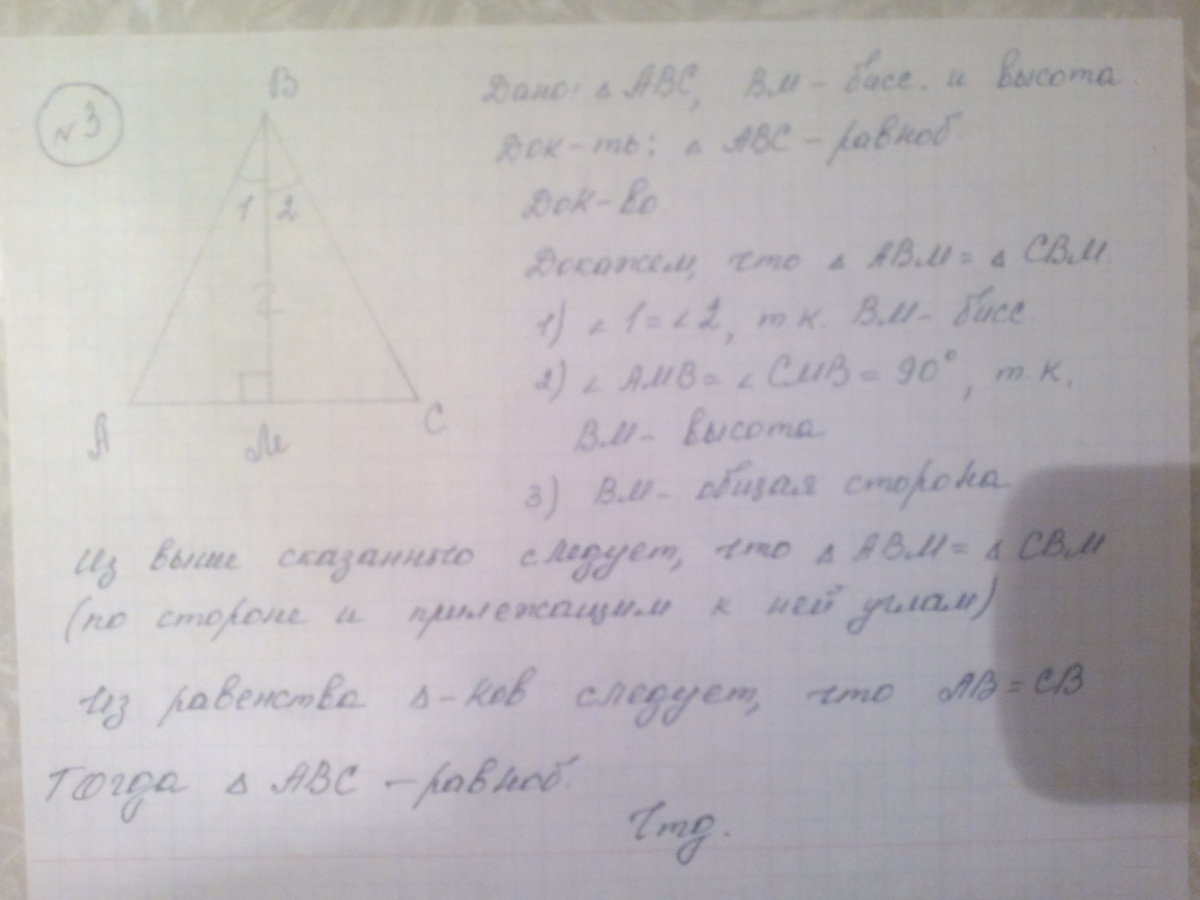 №3
B
1 2
A
M
C
Дано: △ ABC, BM - бисс. и высота
Док-ть: △ ABC - равноб
Док-во
Докажем, что △ ABM = △ CBM.
1) ∠1 = ∠2, т.к. BM - бисс
2) ∠ AMB = ∠ CMB = 90°, т.к.
BM - высота
3) BM - общая сторона
Из выше сказанного следует, что △ ABM = △ CBM
(по стороне и прилежащим к ней углам)
Из равенства △-ков следует, что AB = CB
Тогда △ ABC - равноб.
Чтд.